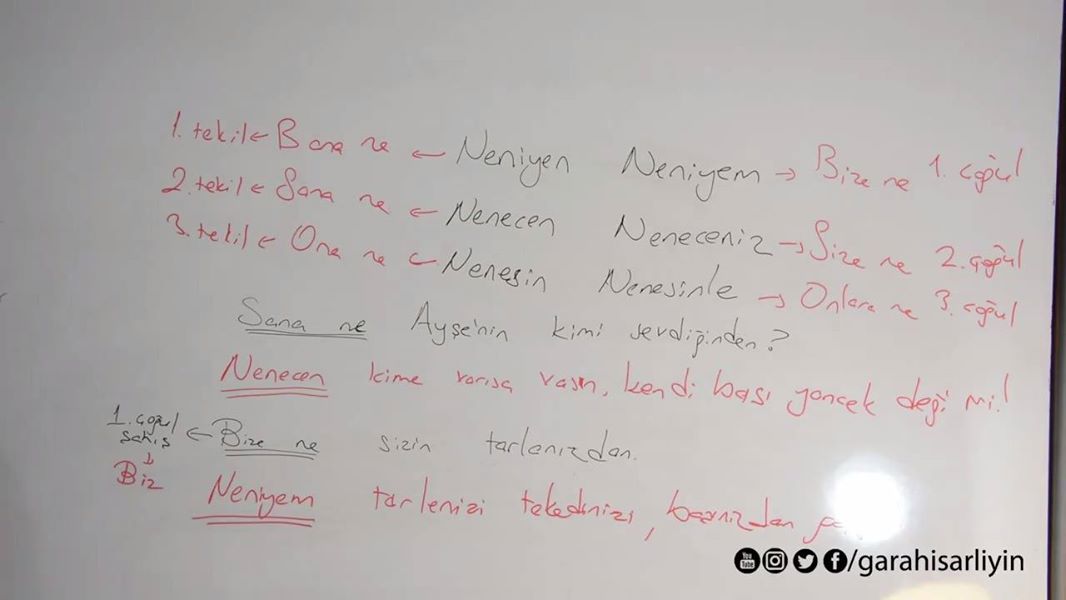 1. tekil ← Bana ne ← Neniyen Neniyem → Bize ne 1. çoğul
2. tekil ← Sana ne ← Nenecen Neneceniz → Size ne 2. çoğul
3. tekil ← Ona ne ← Nenesin Nenesinle → Onlara ne 3. çoğul
Sana ne Ayşe'nin kimi sevdiğinden?
Nenecen kime varısa vasın, kendi başı yoncek deği mi!
1. çoğul şahıs ← Bize ne sizin tarlanızdan.
↓
Biz Neniyem tarlenizi takedinizi,
/garahisarliyin